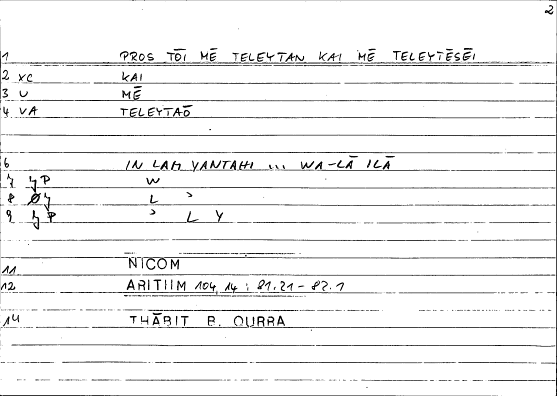 2
1 PROS TŌI MĒ TELEYTAN KAI MĒ TELEYTĒSĒI
2 XC KAI
3 U MĒ
4 VA TELEYTAŌ
6 IN LAM YANTAHI ... WA-LĀ ILĀ
P W
8 L ʾ
9 P ʾ L Y
11 NICOM
12 ARITIIM 104,14 : 81.21 - 82.1
14 THĀBIT B. QURRA